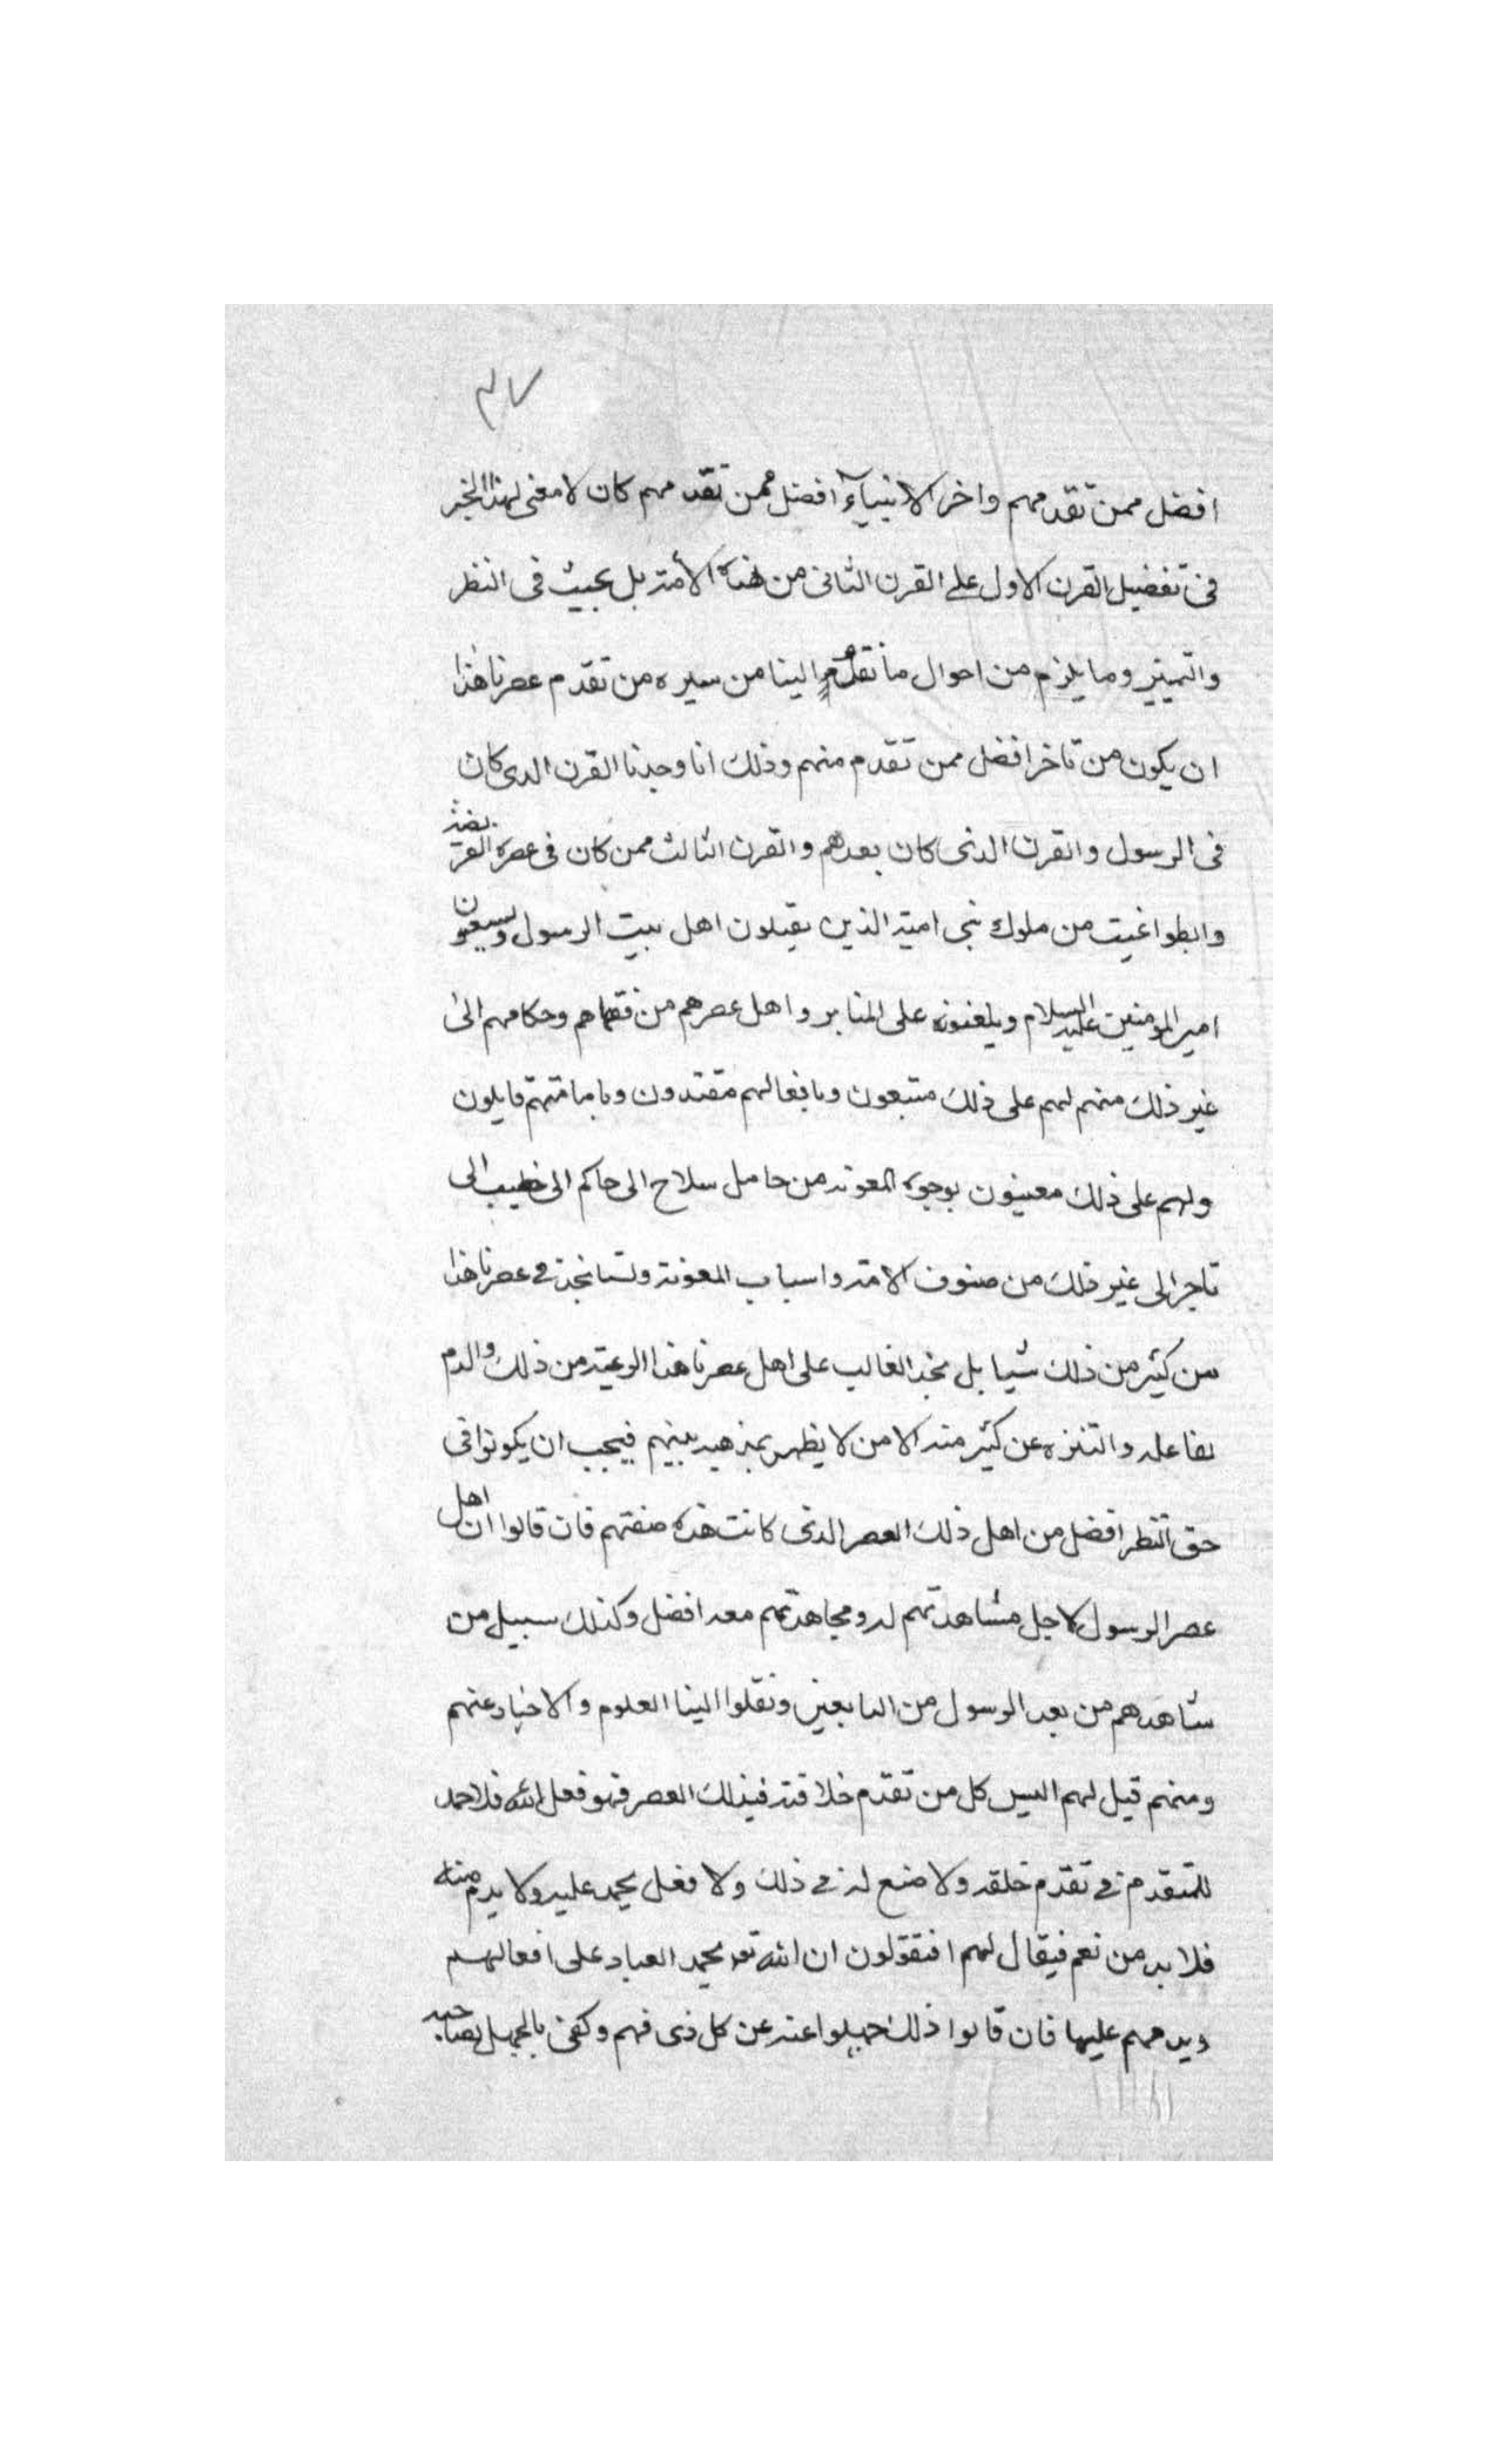 ٣٧
افضل ممن تقدمهم واخر الانبياء افضل ممن تقدمهم كان لا معنى لهذا الخبر
فى تفضيل القرن الاول على القرن الثانى من هذه الأمة بل يجب فى النظر
والتمييز وما يلزم من احوال ما نقل الينا من سيره من تقدم عصرنا هذا
ان يكون من تاخر افضل ممن تقدم منهم وذلك انا وجدنا القرن الدى كان
فى الرسول والقرن الذى كان بعدهم والقرن الثالث ممن كان فى عصره
والطواغيت من ملوك بنى امية الذين يقتلون اهل بيت الرسول ويسبون
امير المومنين عليه السلام ويلعنونه على المنابر واهل عصرهم من فقهاهم وحكامهم الى
غير ذلك منهم لهم على ذلك متبعون وبافعالهم مقتدون وبامامتهم قايلون
ولهم على ذلك معينون بوجوه المعونة من حامل سلاح الى حاكم الى خطيب الى
تاجر الى غير ذلك من صنوف الامة واسباب المعونة ولسنا نجد فى عصرنا هذا
من كثير من ذلك شيا بل نجد الغالب على اهل عصرنا هذا الرعية من ذلك والدم
لفاعله والتنزه عن كثير منه الا من لا يظهر بمذهبه بينهم فيجب ان يكونوا فى
حق النظر افضل من اهل ذلك العصر الذى كانت هذه صفتهم فان قالوا ان اهل
عصر الرسول لاجل مشاهدتهم له ومجاهدتهم معه افضل وكذلك سبيل من
شاهدهم من بعد الرسول من التابعين ونقلوا الينا العلوم والاخبار عنهم
ومنهم قيل لهم اليس كل من تقدم خلاقته فى ذلك العصر فهو فعل الله فلا حمد
للمتقدم فى تقدم خلقه ولا صنع له فى ذلك ولا فعل يحمد عليه ولا يدم منه
فلا بد من نعم فيقال لهم افتقولون ان الله تعه يحمد العباد على افعالهم
ويدمهم عليها فان قالوا ذلك جهلوا عند عن كل ذى فهم وكفى بالجهل لصاحبه